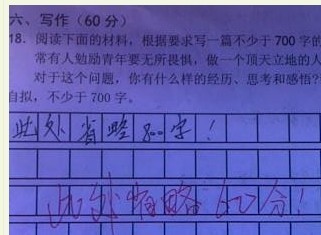 六、写作（60分）
18. 阅读下面的材料，根据要求写一篇不少于700字的
常有人勉励青年要无所畏惧，做一个顶天立地的人
对于这个问题，你有什么样的经历、思考和感悟？
自拟，不少于700字。
此处省略800字！
此处省略60分！